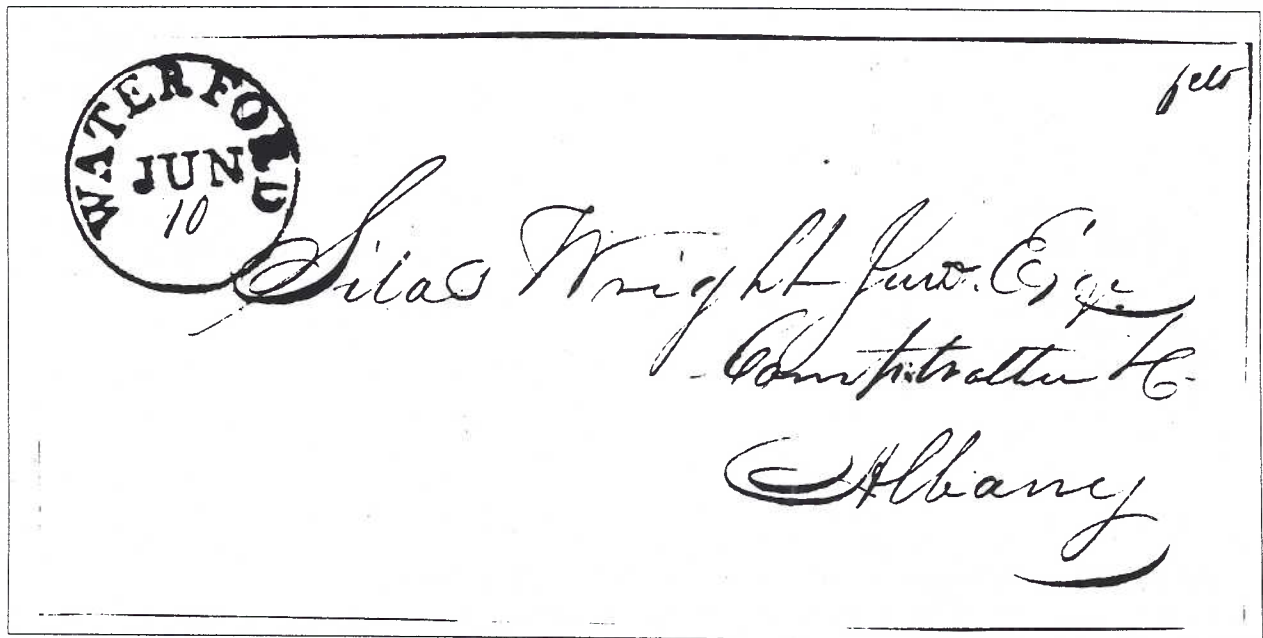 WATERFORD
JUN
10
Silas Wright Junr. Esqr.
Comptroller &c
Albany